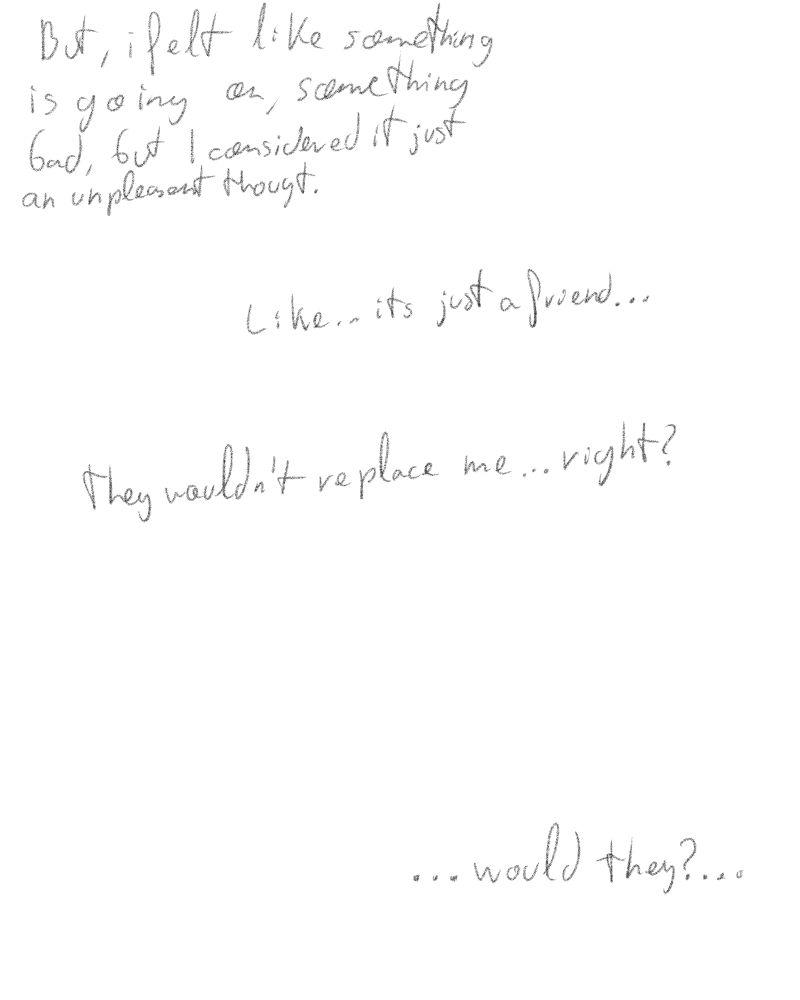 But, i felt like something
is going on, something
bad, but I considered it just
an unpleasant thougt.
Like... its just a friend...
They wouldn't replace me... right?
...would they?....